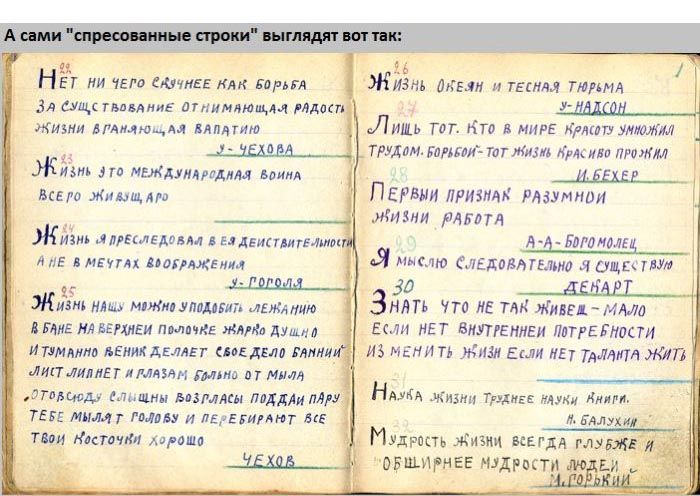 А сами "спресованные строки" выглядят вот так:
22
НЕТ НИ ЧЕГО СКУЧНЕЕ КАК БОРЬБА
ЗА СУЩСТВОВАНИЕ ОТНИМАЮЩАЯ РАДОСТЬ
ЖИЗНИ ВГАНЯЮЩАЯ ВАПАТИЮ
У-ЧЕХОВА
23
ЖИЗНЬ ЭТО МЕЖДУНАРОДНАЯ ВОИНА
ВСЕГО ЖИВУЩАГО
24
ЖИЗНЬ Я ПРЕСЛЕДОВАЛ В ЕЯ ДЕИСТВИТЕЛЬНОСТИ
А НЕ В МЕЧТАХ ВООБРАЖЕНИЯ
У-ГОГОЛЯ
25
ЖИЗНЬ НАЩУ МОЖНО УПОДОБИТЬ ЛЕЖАНИЮ
В БАНЕ НА ВЕРХНЕИ ПОЛОЧКЕ ЖАРКО ДУШНО
И ТУМАННО ВЕНИК ДЕЛАЕТ СВОЕ ДЕЛО БАННИЙ
ЛИСТ ЛИПНЕТ И ГЛАЗАМ БОЛЬНО ОТ МЫЛА
ОТОВСЮДУ СЛЫЩНЫ ВОЗГЛАСЫ ПОДДАИ ПАРУ
ТЕБЕ МЫЛЯТ ГОЛОВУ И ПЕРЕБИРАЮТ ВСЕ
ТВОИ КОСТОЧКИ ХОРОШО
ЧЕХОВ
1
26
ЖИЗНЬ ОКЕЯН И ТЕСНАЯ ТЮРЬМА
У-НАДСОН
27
ЛИЩЬ ТОТ. КТО В МИРЕ КРАСОТУ УМНОЖИЛ
ТРУДОМ. БОРЬБОЙ-ТОТ ЖИЗНЬ КРАСИВО ПРОЖИЛ
И. БЕХЕР
28
ПЕРВЫЙ ПРИЗНАК РАЗУМНОИ
ЖИЗНИ РАБОТА
А-А-БОГОМОЛЕЦ
29
Я МЫСЛЮ СЛЕДОВАТЕЛЬНО Я СУЩЕСТВУЮ
ДЕКАРТ
30
ЗНАТЬ ЧТО НЕ ТАК ЖИВЕШ-МАЛО
ЕСЛИ НЕТ ВНУТРЕННЕИ ПОТРЕБНОСТИ
ИЗ МЕНИТЬ ЖИЗН ЕСЛИ НЕТ ТАЛАНТА ЖИТЬ
31
НАУКА ЖИЗНИ ТРУДНЕЕ НАУКИ КНИГИ.
Н. БАЛУХИН
32
МУДРОСТЬ ЖИЗНИ ВСЕГДА ГЛУБЖЕ И
ОБЩИРНЕЕ МУДРОСТИ ЛЮДЕЙ
М.ГОРЬКИЙ